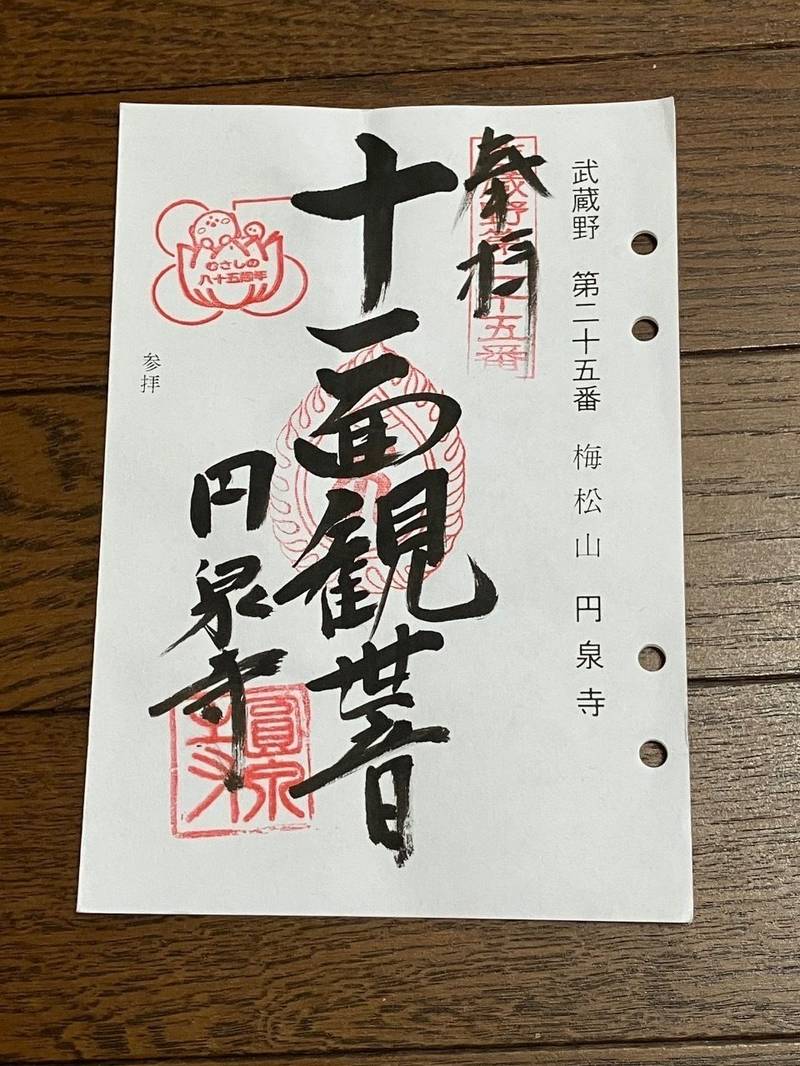 武蔵野 第二十五番 梅松山 円泉寺
奉拝
武蔵野第二十五番
十一面観世音
円泉寺
圓泉寺
むさしの
八十五周年
参拝